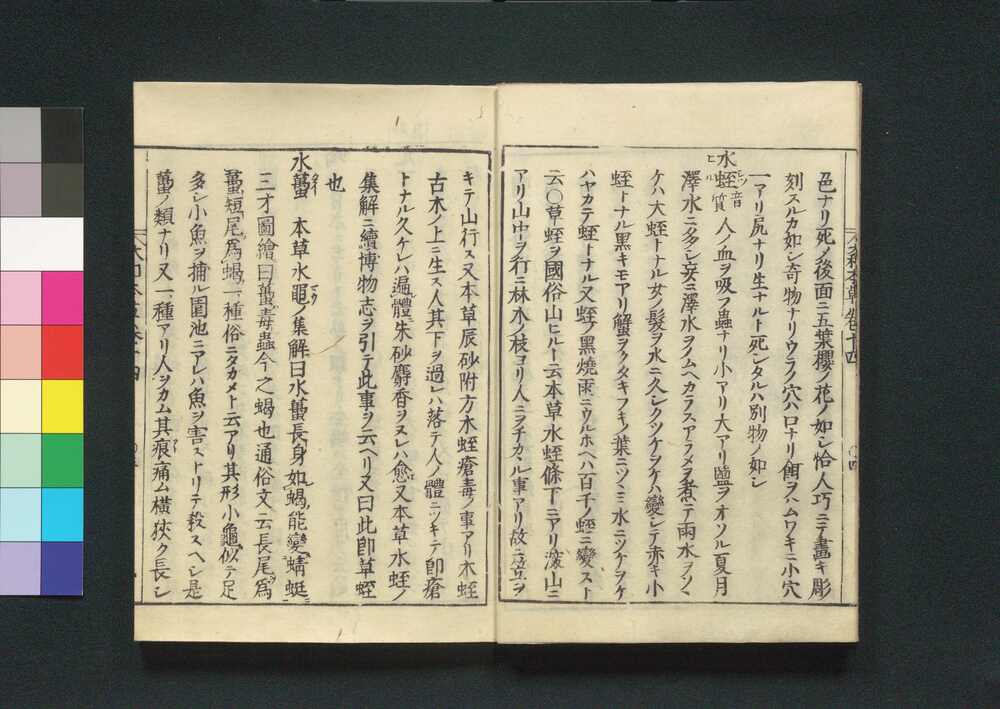 色ナリ死ノ後面ニ五葉櫻ノ花ノ如シ恰人巧ミニテ畫キ彫
刻スルカ如シ奇物ナリウラノ穴ハ口ナリ餌ヲハムワキニ小穴
一アリ尻ナリ生ナルト死シタルハ別物ノ如シ
水蛭音質 人ノ血ヲ吸フ蟲ナリ小アリ大アリ鹽ヲオソル夏月
澤水ニ多シ妄ニ澤水ヲノムヘカラスアラメヲ煮テ雨水ヲソヽ
ケハ大蛭トナル女ノ髪ヲ水ニ久シクツケヲケハ變シテ赤キ小
蛭トナル黒キモアリ蟹ヲクタキフキノ葉ニツヽミ水ニツケヲケ
ハヤカテ蛭トナル又蛭ノ黒燒雨ニウルホヘハ百千ノ蛭ニ變スト
云○草蛭ヲ國俗山ヒルト云本草水蛭條下ニアリ深山ニ
アリ山中ヲ行ニ林木ノ枝ヨリ人ニヲチカヽル事アリ故ニ笠ヲ
キテ山行ス又本草辰砂附方木蛭瘡毒ノ事アリ木蛭
古木ノ上ニ生ス人其下ヲ過レハ落テ人ノ體ニツキテ卽瘡
トナル久ケレハ遍體朱砂麝香ヲヌレハ愈又本草水蛭ノ
集解ニ續博物志ヲ引テ此事ヲ云ヘリ又曰此卽草蛭
也
水蠆 本草水黽ノ集解曰水蠆長身如蝎能變蜻蜓
三才圖繪曰蠆毒蟲今之蝎也通俗文云長尾爲
蠆短尾爲蝎一種俗ニタカメト云アリ其形小龜ニ似テ足
多シ小魚ヲ捕ル園池ニアレハ魚ヲ害ストリテ殺スヘシ是
蠆ノ類ナリ又一種アリ人ヲカム其痕痛ム横狹ク長シ